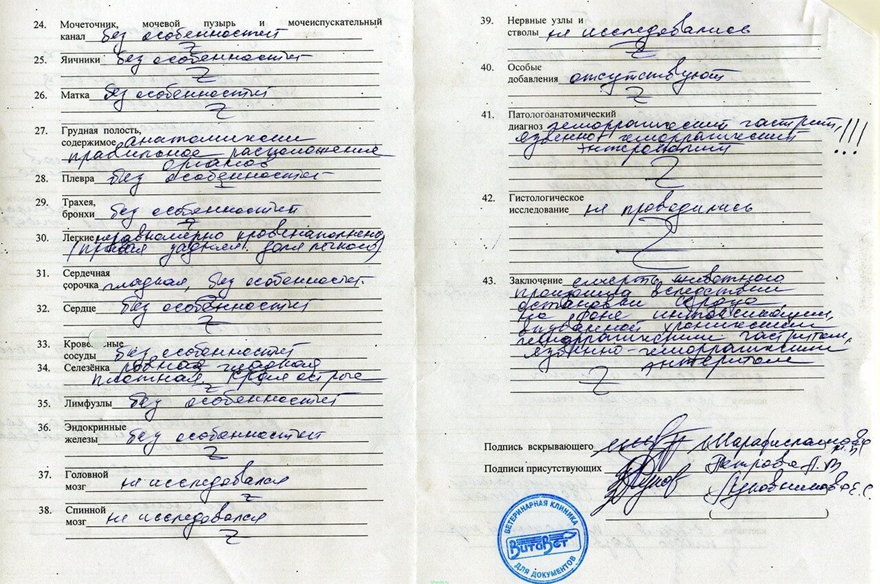 24. Мочеточник, мочевой пузырь и мочеиспускательный
канал без особенностей
25. Яичники без особенностей
26. Матка без особенностей
27. Грудная полость,
содержимое анатомически
правильное расположение
органов
28. Плевра без особенностей
29. Трахея,
бронхи без особенностей
30. Легкие неравномерно кровенаполнено
(правая задняя доля легкого)
31. Сердечная
сорочка гладкая, без особенностей
32. Сердце без особенностей
33. Крове ные
сосуды без особенностей
34. Селезёнка гладкая
плотная, края острые
35. Лимфузлы без особенностей
36. Эндокринные
железы без особенностей
37. Головной
мозг не исследовался
38. Спинной
мозг не исследовался
39. Нервные узлы и
стволы не исследовались
40. Особые
добавления отсутствуют
41. Патологоанатомический
диагноз геморрагический гастрит, !!!
язвенно-геморрагический
энтероколит
42. Гистологическое
исследование не проводились
43. Заключение смерть животного
произошла вследствии
остановки сердца
на фоне интоксикации,
вызванной хроническим
геморрагическим гастритом,
язвенно-геморрагическим
энтеритом
Подпись вскрывающего
Подписи присутствующих Петрова Л. В
( )
ВЕТЕРИНАРНАЯ КЛИНИКА
ВитаВет
ДЛЯ ДОКУМЕНТОВ